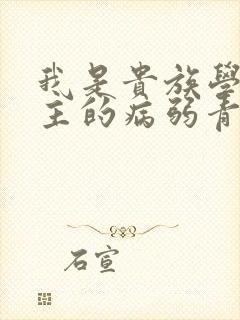 我是貴族學
主的病弱青
石宣